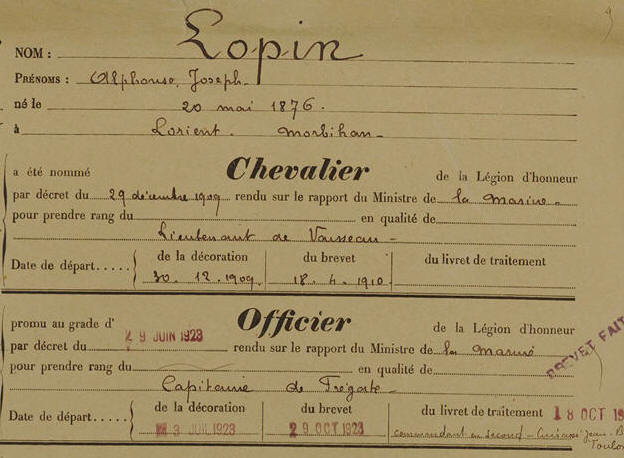 NOM : Lopin
PRÉNOMS : Alphonse, Joseph
né le 20 mai 1876.
à Lorient. Morbihan
a été nommé Chevalier de la Légion d'honneur
par décret du 29 décembre 1909 rendu sur le rapport du Ministre de la Marine
pour prendre rang du en qualité de
Lieutenant de Vaisseau
Date de départ..... de la décoration du brevet du livret de traitement
30. 12. 1909. 18. 4. 1910
promu au grade d' Officier de la Légion d'honneur
par décret du 29 JUIN 1923 rendu sur le rapport du Ministre de la Marine
BREVET FAIT
pour prendre rang du en qualité de
Capitaine de Frégate
Date de départ..... de la décoration du brevet du livret de traitement 18 OCT 19
3 JUIL 1923 29 OCT 1923 commandant en second Jean B
Toulon